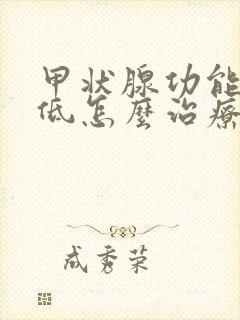 甲状腺功能
低怎麽治療
成秀荣